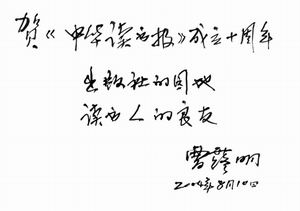 贺《中华读书报》成立十周年
出版社的园地
读书人的良友
2004年8月10日